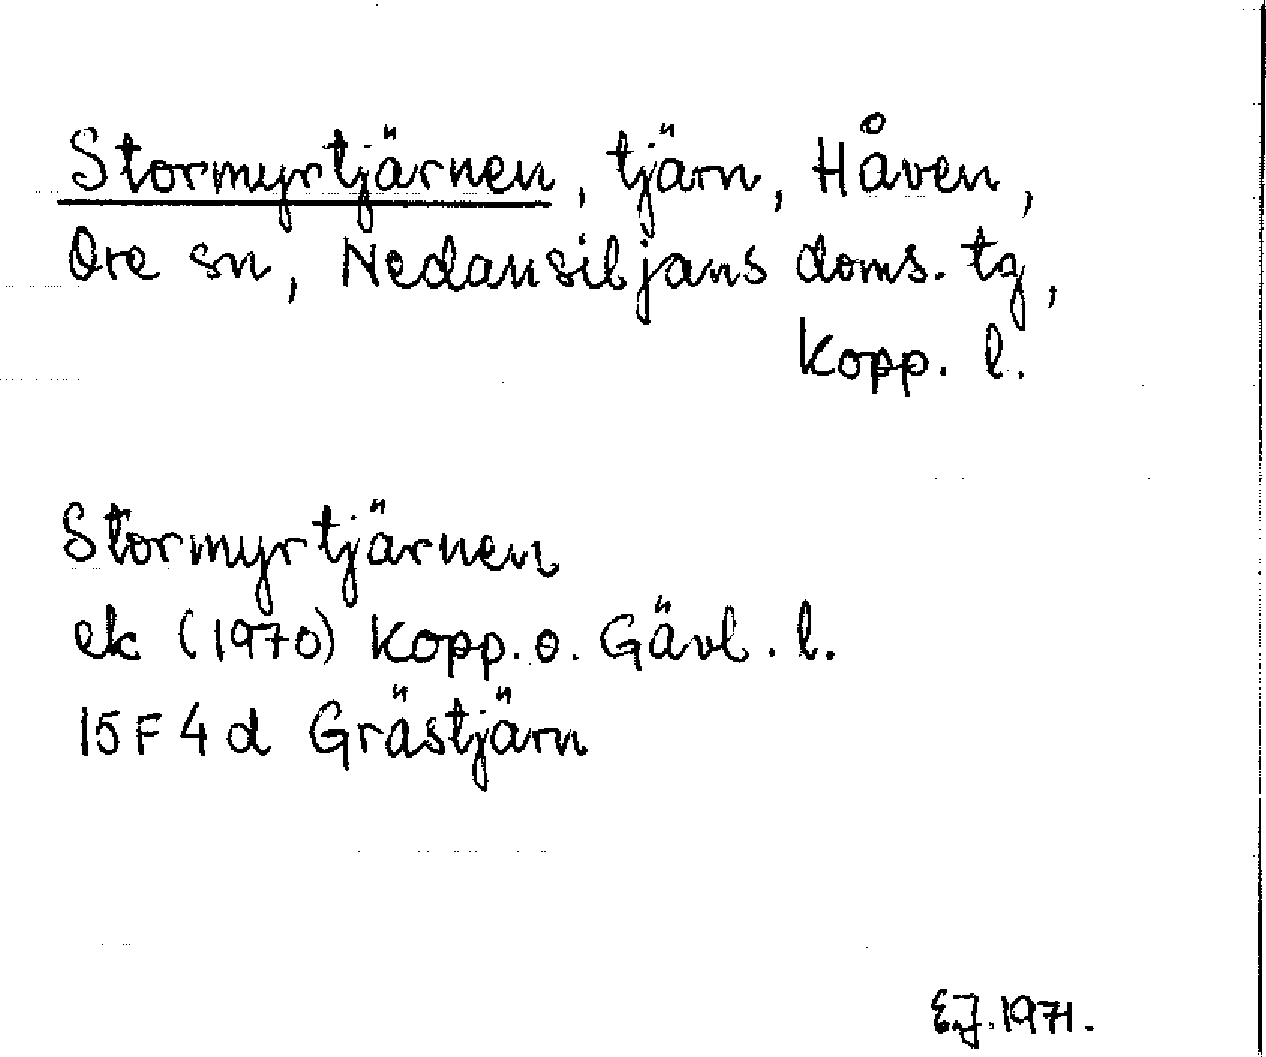 Stormyrtjärnen, tjärn, Håven,
Ore sn, Nedansiljans doms. tg,
Kopp. l.
Stormyrtjärnen
ek (1970) Kopp. o. Gävl. l.
15F4d Grästjärn
E.J. 1971.